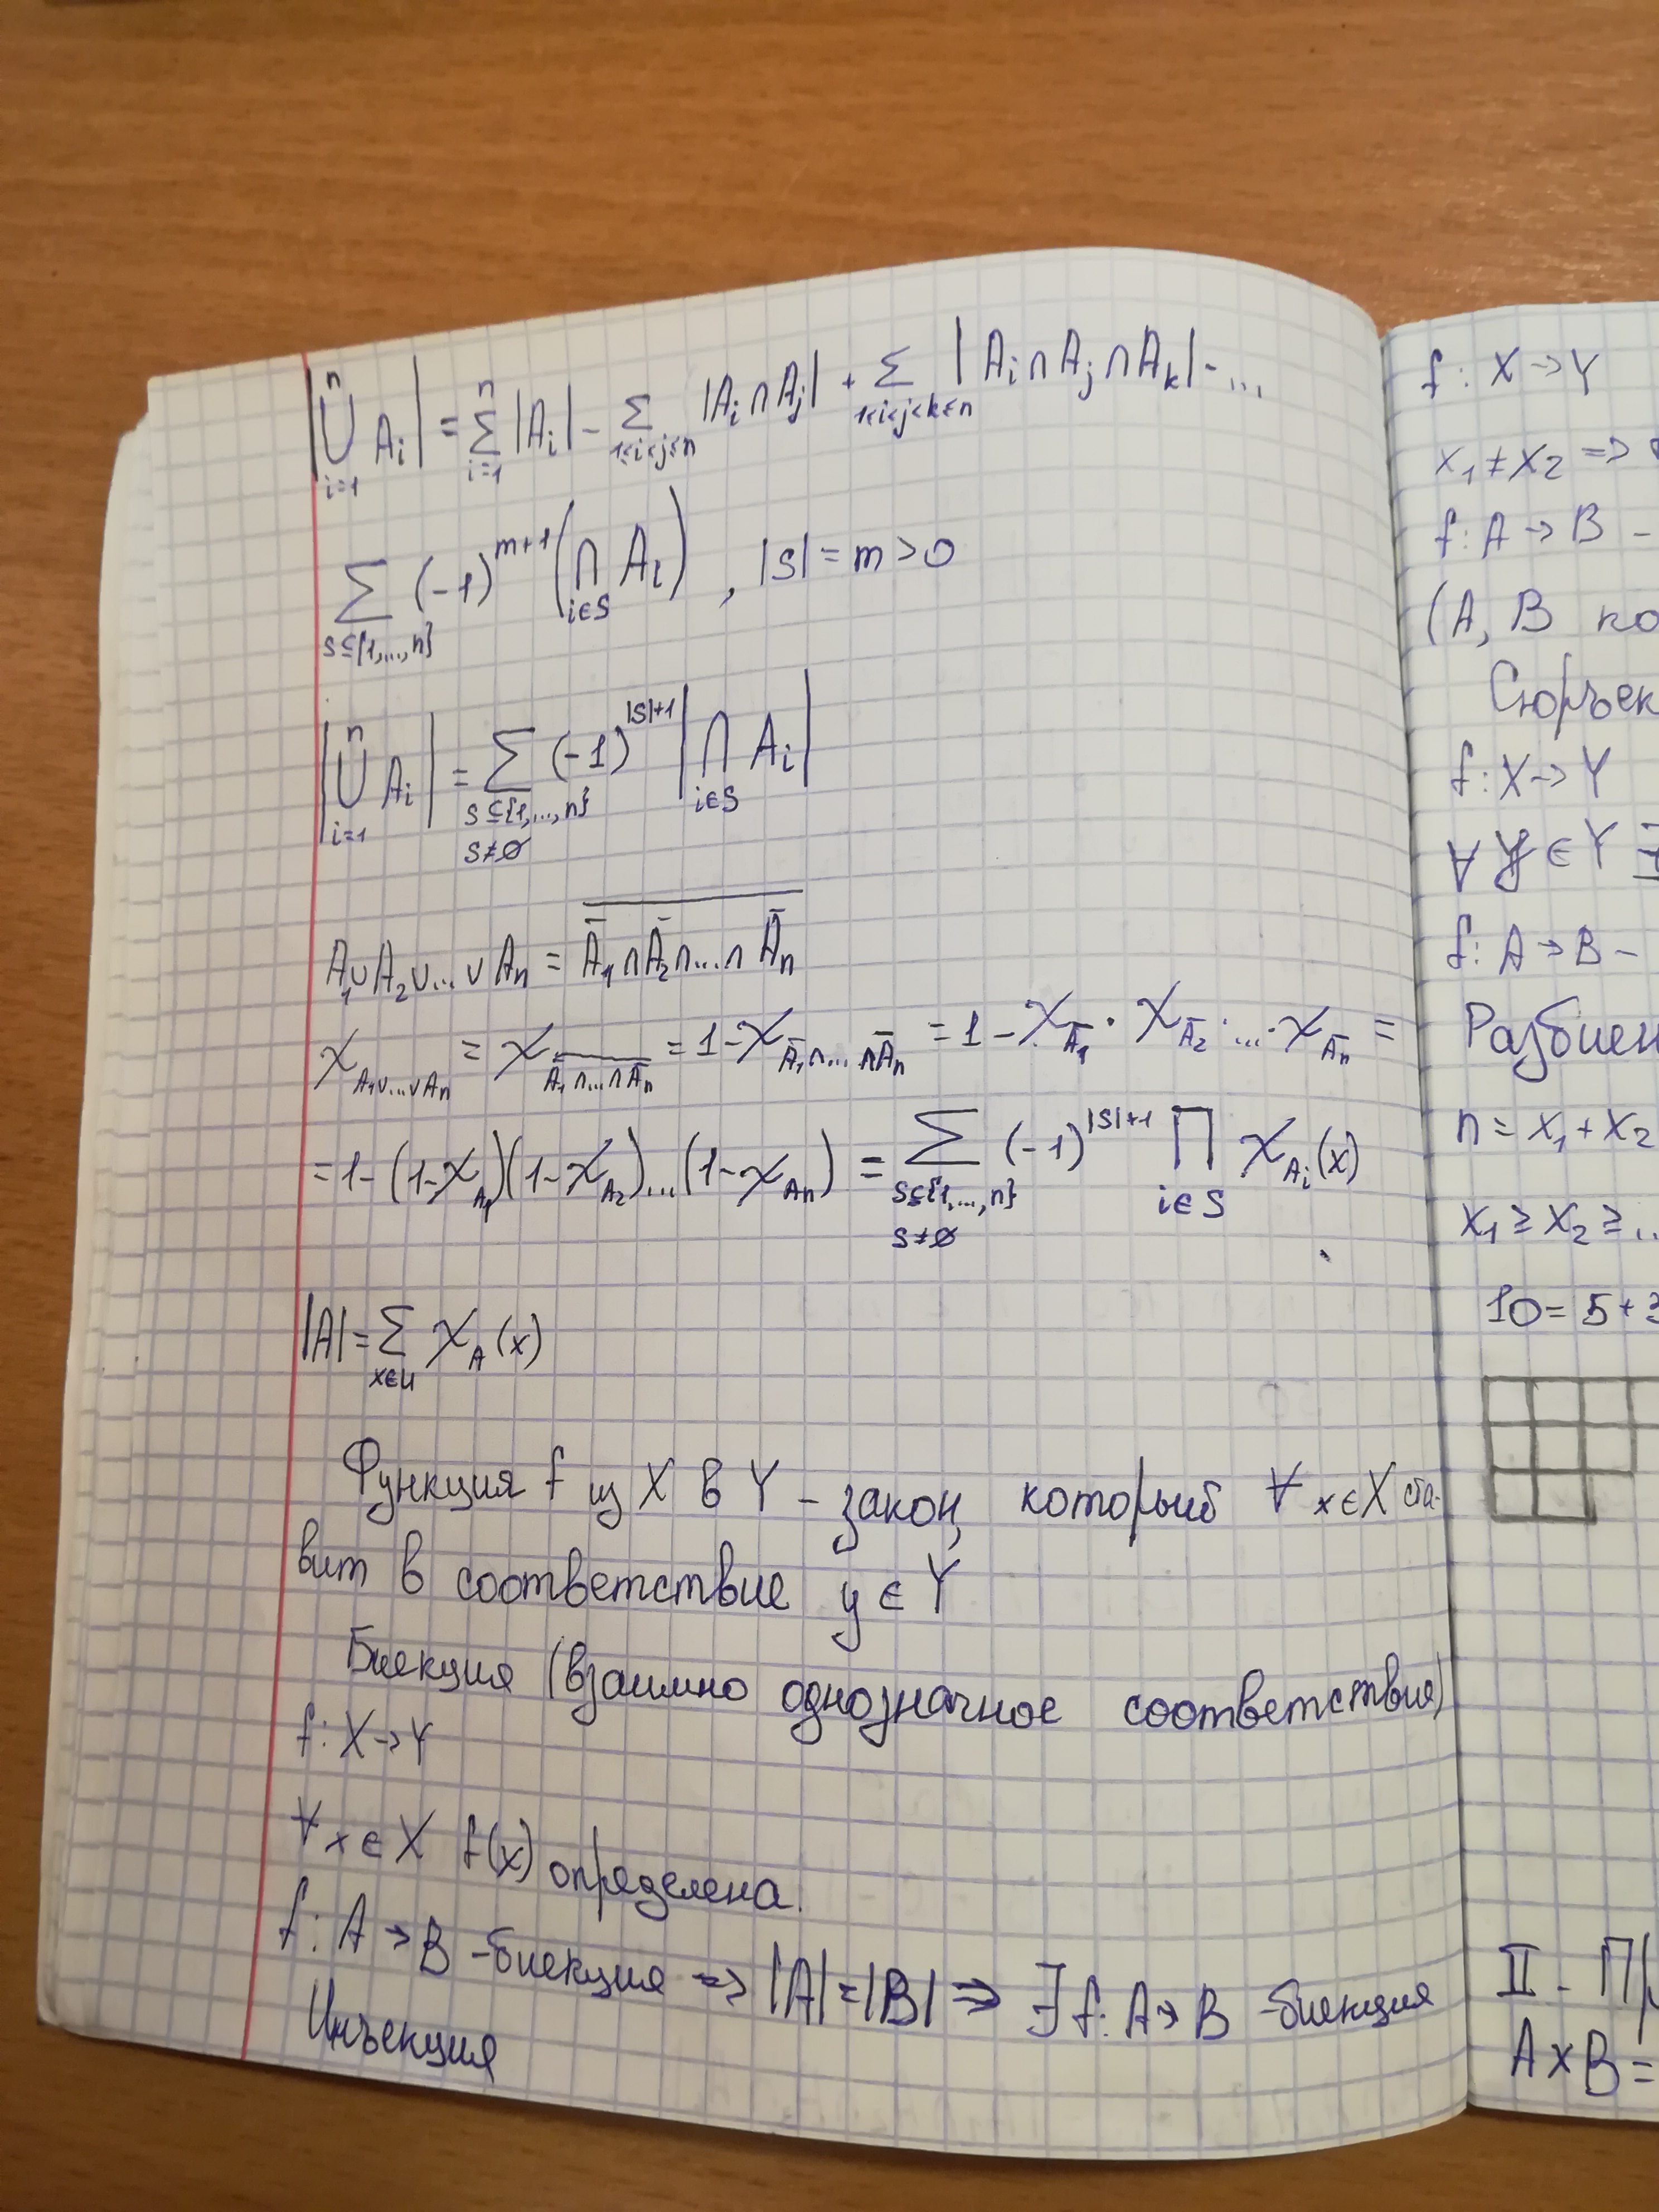 |⋃_{i=1}^{n} A_i| = Σ_{i=1}^{n} |A_i| - Σ_{1≤i<j≤n} |A_i ∩ A_j| + Σ_{1≤i<j<k≤n} |A_i ∩ A_j ∩ A_k| - ...
Σ_{S⊆{1,...,n}} (-1)^{m+1} (⋂_{i∈S} A_i), |S| = m > 0
|⋃_{i=1}^{n} A_i| = Σ_{S⊆{1,...,n} S≠∅} (-1)^{|S|+1} |⋂_{i∈S} A_i|
A_1 ∪ A_2 ∪ ... ∪ A_n = \overline{Ā_1 ∩ Ā_2 ∩ ... ∩ Ā_n}
χ_{A_1∪...∪A_n} = χ_{\overline{Ā_1∩...∩Ā_n}} = 1 - χ_{Ā_1∩...∩Ā_n} = 1 - χ_{Ā_1} · χ_{Ā_2} · ... · χ_{Ā_n} =
= 1 - (1-χ_{A_1})(1-χ_{A_2})...(1-χ_{A_n}) = Σ_{S⊆{1,...,n} S≠∅} (-1)^{|S|+1} ∏_{i∈S} χ_{A_i}(x)
|A| = Σ_{x∈U} χ_A(x)
Функция f из X в Y - закон, который ∀ x∈X ста-
вит в соответствие y ∈ Y
Биекция (взаимно однозначное соответствие)
f: X → Y
∀ x ∈ X f(x) определена.
f: A → B - биекция => |A| = |B| => ∃ f: A → B - биекция
Инъекция
f: X → Y
x_1 ≠ x_2 =>
f: A → B -
(A, B
f: X → Y
∀ y ∈ Y ∃
f: A → B -
n = x_1 + x_2
x_1 ≥ x_2 ≥ ..
10 = 5 + 3
II -
A × B =